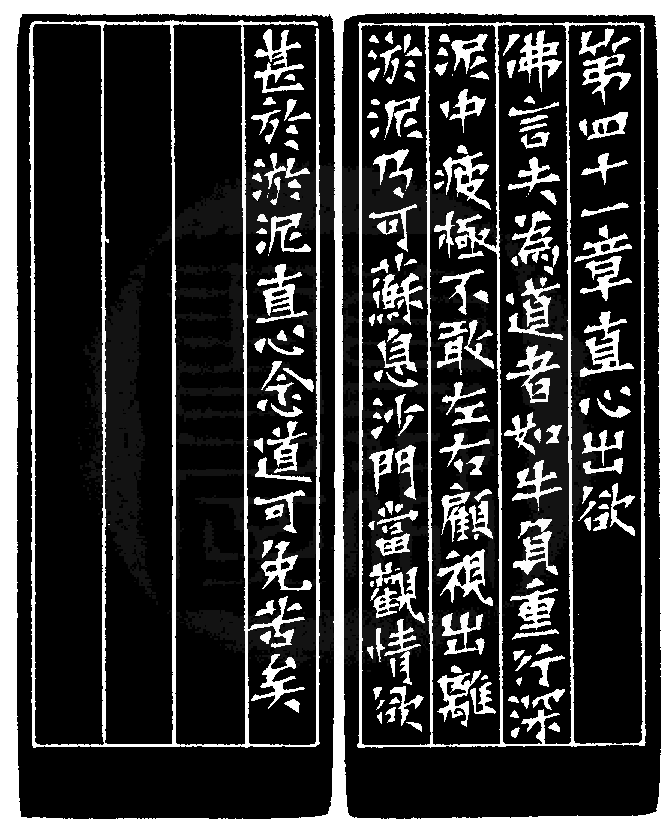 第四十一章直心出欲
佛言夫為道者如牛負重行深
泥中疲極不敢左右顧視出離
淤泥乃可蘇息沙門當觀情欲
甚於淤泥直心念道可免苦矣